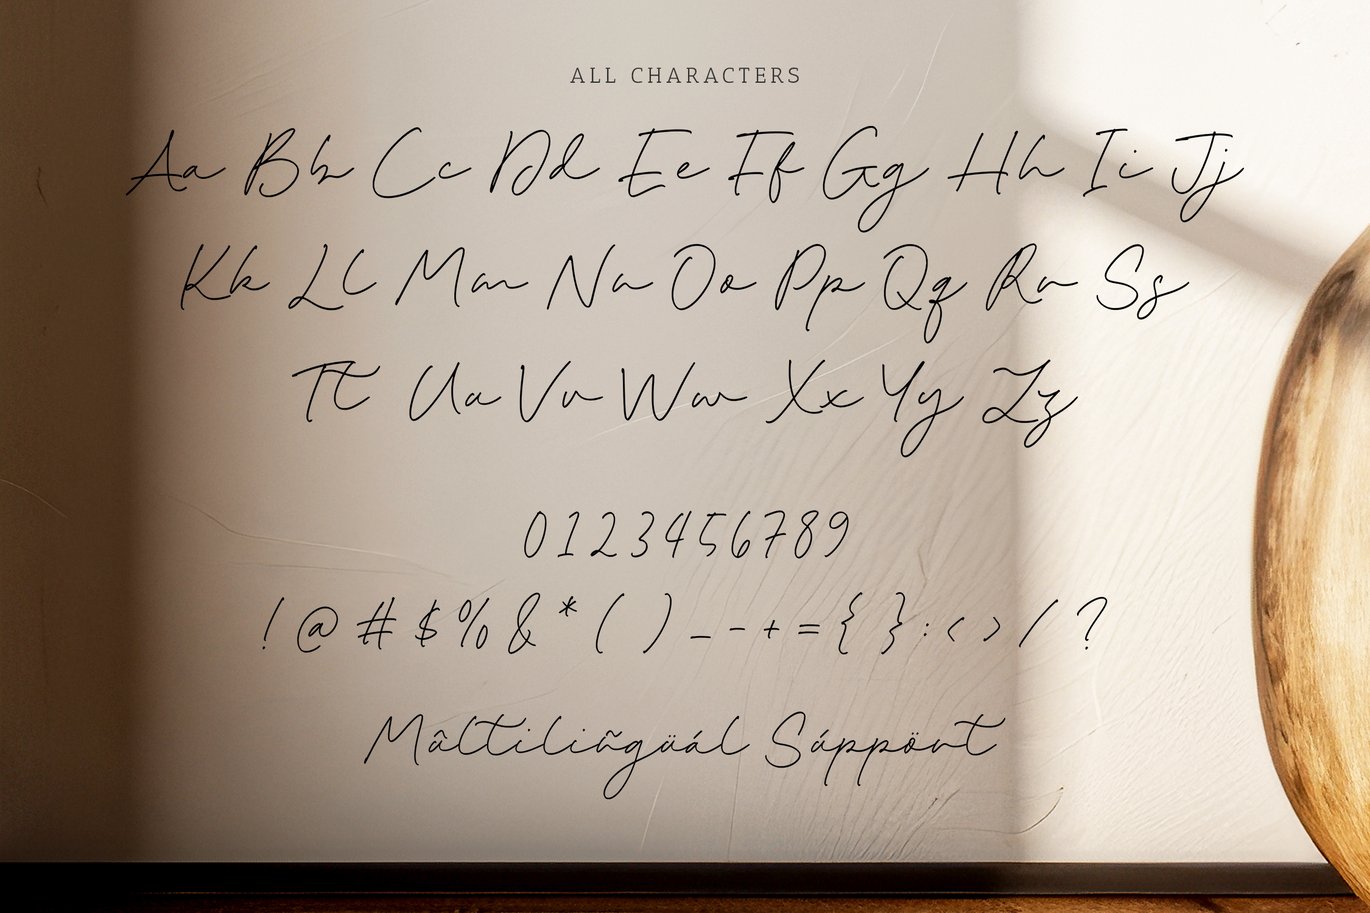 ALL CHARACTERS
Aa Bb Cc Dd Ee Ff Gg Hh Ii Jj
Kk Ll Mm Nn Oo Pp Qq Rr Ss
Tt Uu Vv Ww Xx Yy Zz
0123456789
!@#$%&*()_-+={}:<>/?
Mûltiliñgüál Súppört